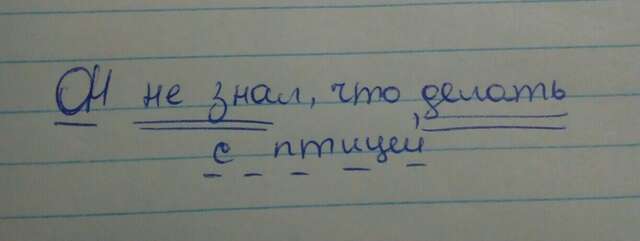 Он не знал, что делать
с птицей